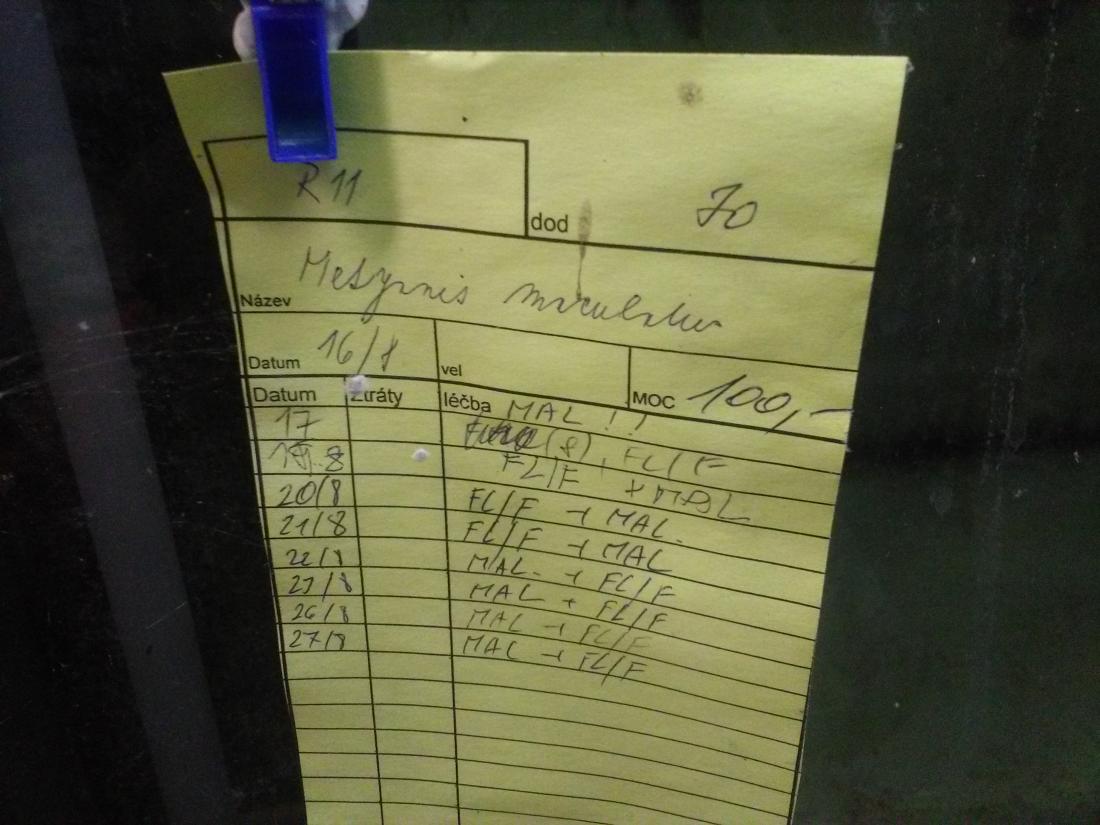 R 11
dod 70
Název Metynnis maculatus
Datum 16/8 vel MOC 100,-
Datum Ztráty léčba MAL !!
17 (8), FL/F
19.8 FL/F + MAL
20/8 FL/F + MAL
21/8 FL/F + MAL
22/8 MAL + FL/F
23/8 MAL + FL/F
26/8 MAL + FL/F
27/8 MAL + FL/F